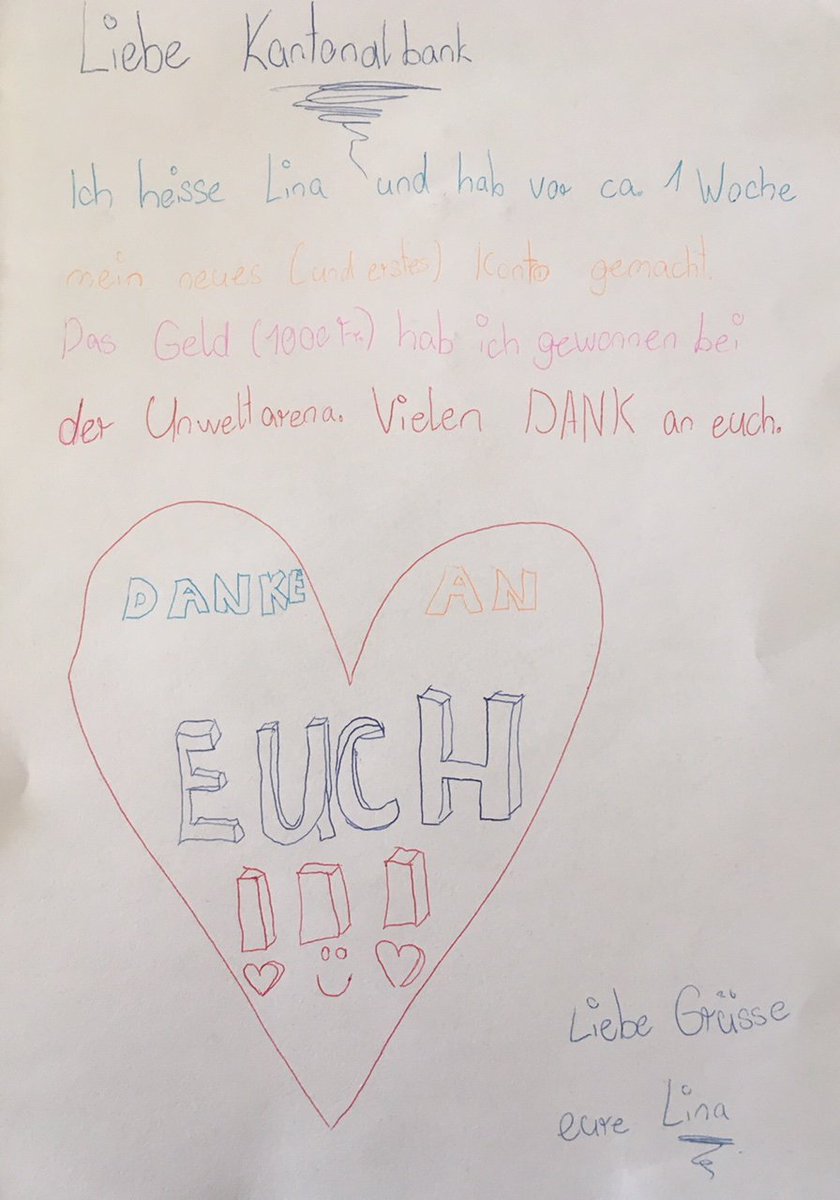 Liebe Kantonalbank
Ich heisse Lina und hab vor ca. 1 Woche
mein neues (und erstes) Konto gemacht.
Das Geld (1000 Fr.) hab ich gewonnen bei
der Umweltarena. Vielen DANK an euch.
DANKE AN
EUCH
!!!
Liebe Grüsse
eure Lina